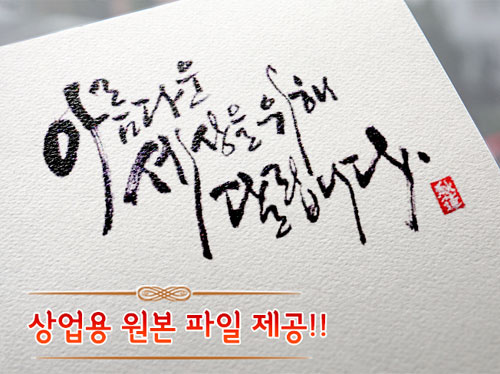 아름다운
세상을 위해
달립니다.
상업용 원본 파일 제공!!